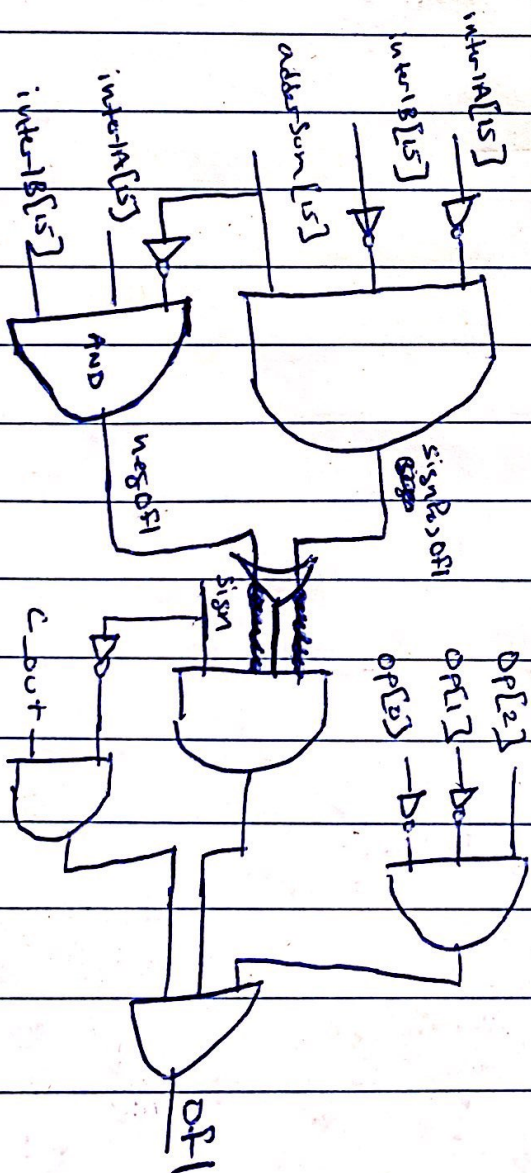 inter1A[15]
inter1B[15]
adderSum[15]
inter1A[15]
inter1B[15]
AND
signPosOfl
negOfl
sign
C_out
Op[2]
Op[1]
Op[0]
Ofl